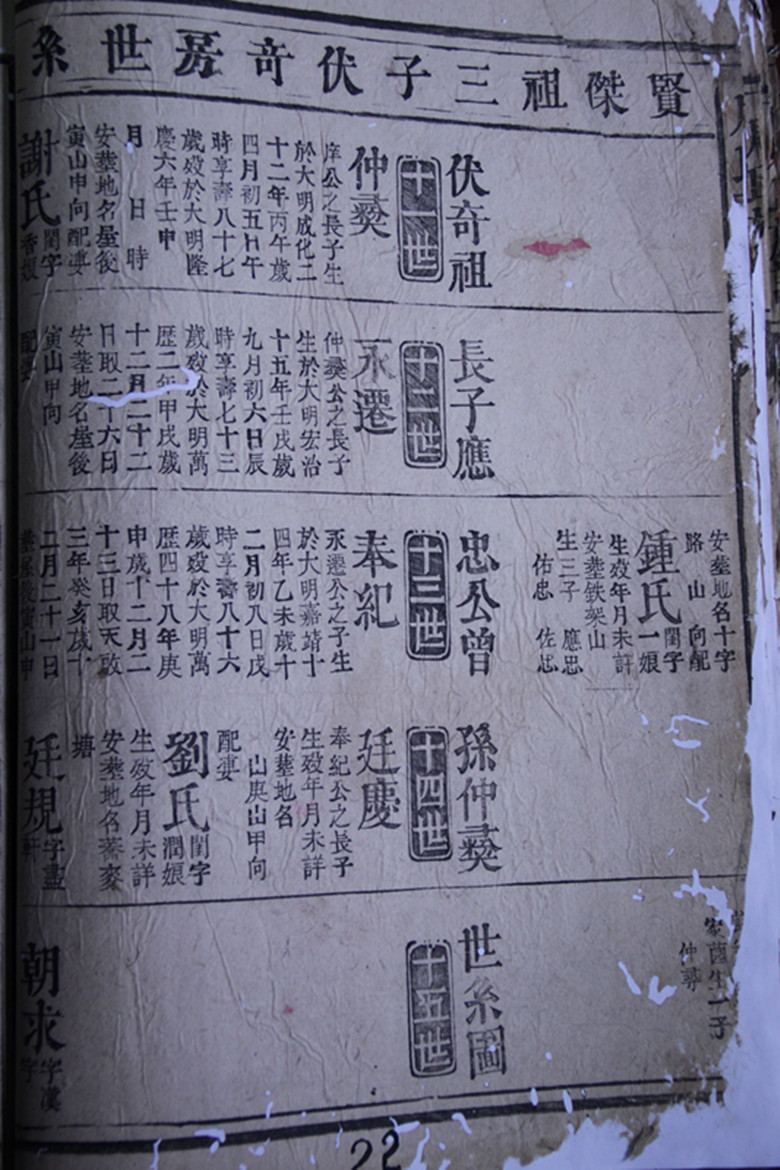 賢傑祖三子伏奇房世系
安塟地名十字
路 山 向配
鍾氏閨字一娘
生歿年月未詳
安塟鉄架山
生三子 應忠
佑忠 佐忠
家蕳生一子
仲彛
伏奇祖長子應忠公曾孫仲彛世系圖
十一世
仲彛
庠公之長子生
於大明成化二
十二年丙午歲
四月初五日午
時享壽八十七
歲歿於大明隆
慶六年壬申
月 日 時
安塟地名屋後
寅山申向配妻
謝氏閨字香娘
十二世
永遷
仲彛公之長子
生於大明宏治
十五年壬戌歲
九月初六日辰
時享壽七十三
歲歿於大明萬
歷二年甲戌歲
十二月二十二
日取二十六日
安塟地名屋後
寅山甲向
配妻
十三世
奉紀
永遷公之子生
於大明嘉靖十
四年乙未歲十
二月初八日戌
時享壽八十六
歲歿於大明萬
歷四十八年庚
申歲十二月二
十三日取天啟
三年癸亥歲十
二月二十一日
寅山申
十四世
廷慶
奉紀公之長子
生歿年月未詳
安塟地名
山庚山甲向
配妻
劉氏閨字潤娘
生歿年月未詳
安塟地名蕎麥
塘
廷規字畫軒
十五世
朝求字漢
字
22